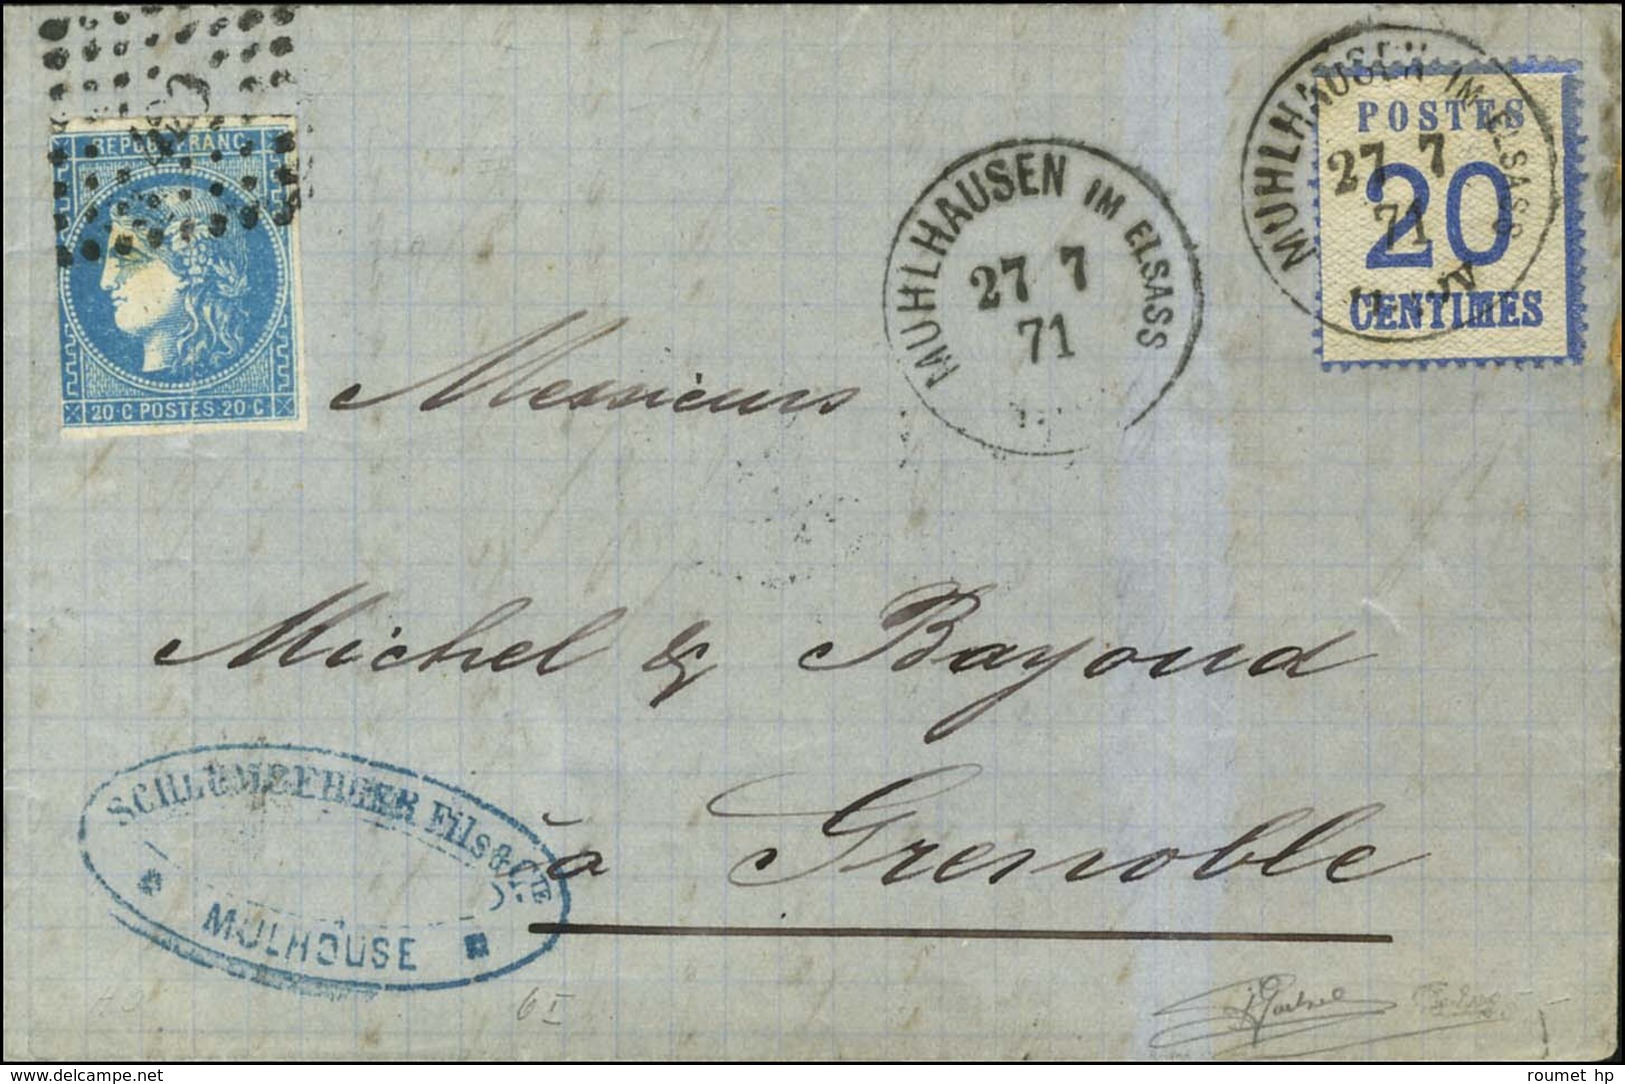 REPUB FRANC
20 C POSTES 20 C
MUHLHAUSEN IM ELSASS
27 7
71
MUHLHAUSEN IM ELSASS
27 7
71
POSTES
20
CENTIMES
Messieurs
Michel & Bayoud
à Grenoble
SCHLUMBERGER Fils & CIE
MULHOUSE
6 I
www.delcampe.net
roumet hp